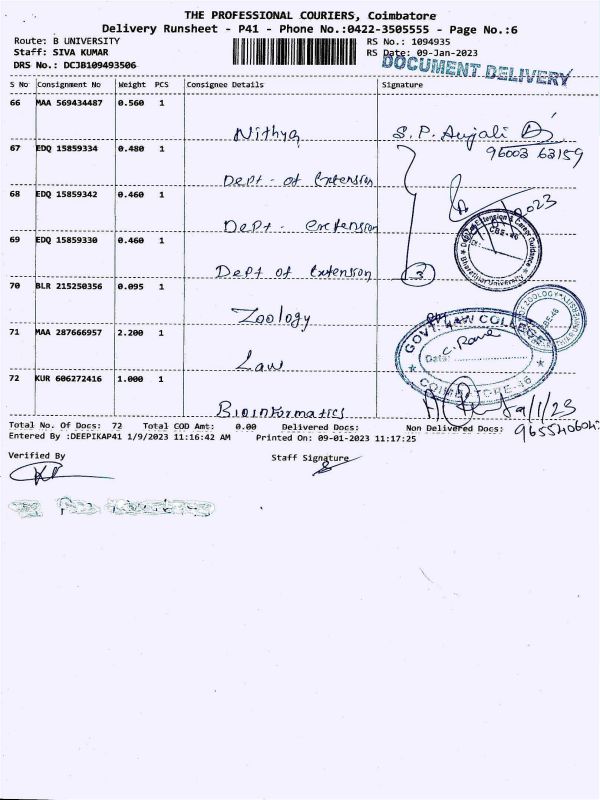 THE PROFESSIONAL COURIERS, Coimbatore
Delivery Runsheet - P41 - Phone No.:0422-3505555 - Page No.:6
Route: B UNIVERSITY
Staff: SIVA KUMAR
DRS No.: DCJB109493506
RS No.: 1094935
RS Date: 09-Jan-2023
DOCUMENT DELIVERY
S No Consignment No Weight PCS Consignee Details Signature
66 MAA 569434487 0.560 1
Nithya S.P. Anjali
96003 63159
67 EDQ 15859334 0.480 1
Dept - of Extension
68 EDQ 15859342 0.460 1
Dept - extension
2023
69 EDQ 15859330 0.460 1
Dept of Extension 3
Extension & Career Guidance
CBE-46
Bharathiar University
70 BLR 215250356 0.095 1
Zoology
ZOOLOGY
71 MAA 287666957 2.200 1
Law
GOVT. LAW COLLEGE
Date:
COIMBATORE-46
72 KUR 606272416 1.000 1
Bioinformatics 9/1/23
Total No. Of Docs: 72 Total COD Amt: 0.00 Delivered Docs: Non Delivered Docs:
Entered By :DEEPIKAP41 1/9/2023 11:16:42 AM Printed On: 09-01-2023 11:17:25
Verified By Staff Signature